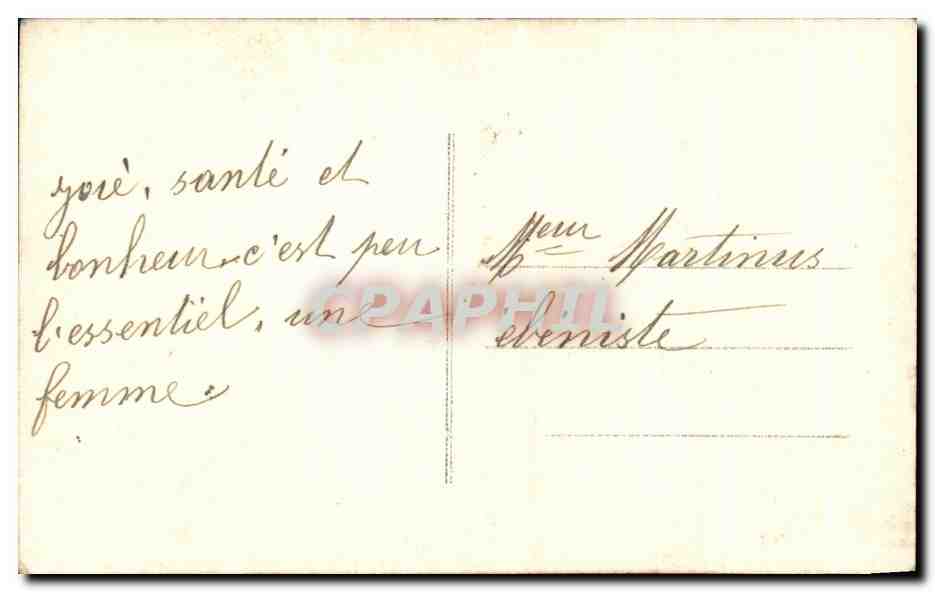 joiè, santé et
bonheur, c'est peu
l'essentiel, une
femme.
Meur Martinus
ebeniste
CPAPHIL